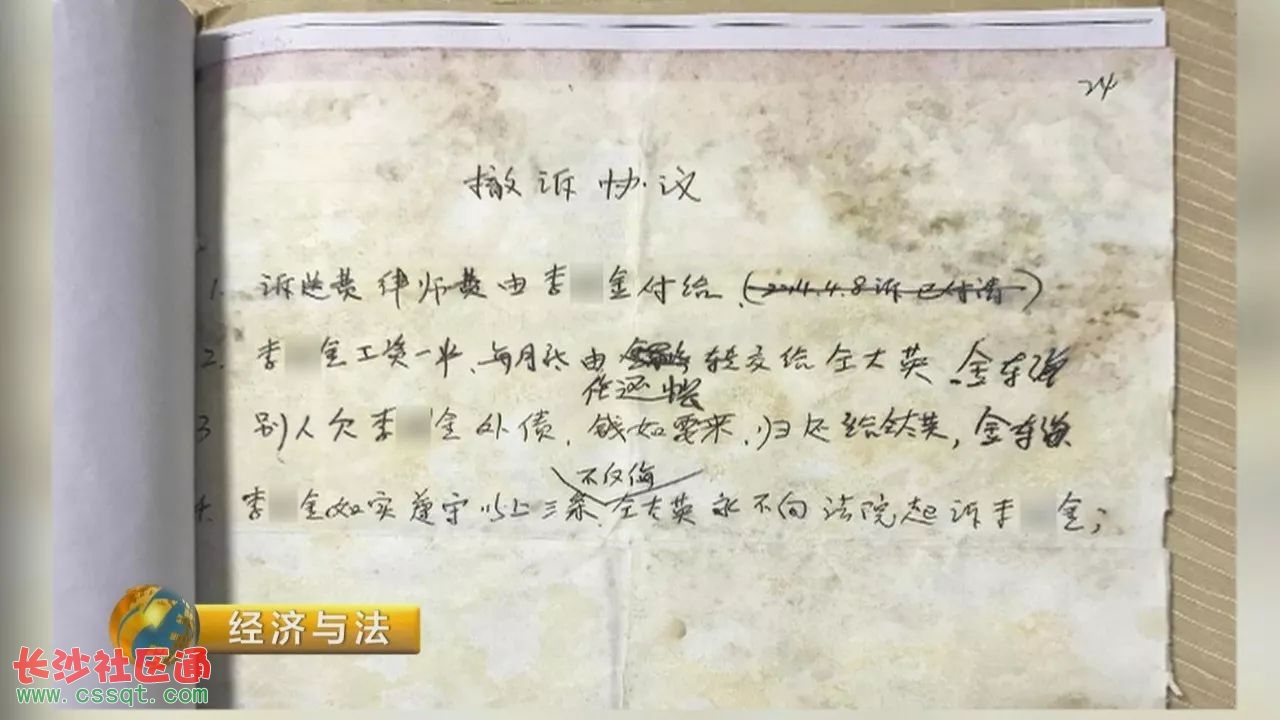 24
撤诉协议
1. 诉讼费律师费由李 金付给 (2014.4.8诉已付清)
2. 李 金工资一半、每月

由 转交给全大英
3 别人欠李 金外债,钱如要来,归还给全大英,
不反悔
4. 李 金如实遵守以上三条、全大英永不向法院起诉李 金;
经济与法
长沙社区通
www.cssqt.com